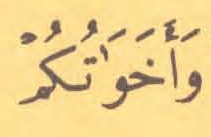 وَأَخَوَٰتُكُمْ